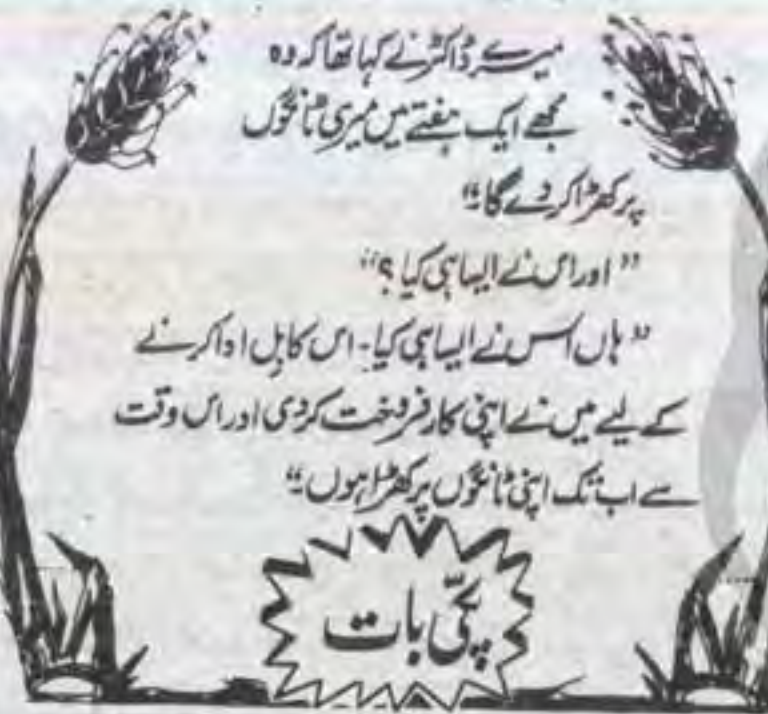 میرے ڈاکٹر نے کہا تھا کہ وہ
مجھے ایک ہفتے میں میری ٹانگوں
پر کھڑا کر دے گا۔“
” اور اس نے ایسا ہی کیا ؟“
” ہاں اس نے ایسا ہی کیا۔ اس کا بل ادا کرنے
کے لیے میں نے اپنی کار فروخت کر دی اور اس وقت
سے اب تک اپنی ٹانگوں پر کھڑا ہوں۔“
پکّی بات